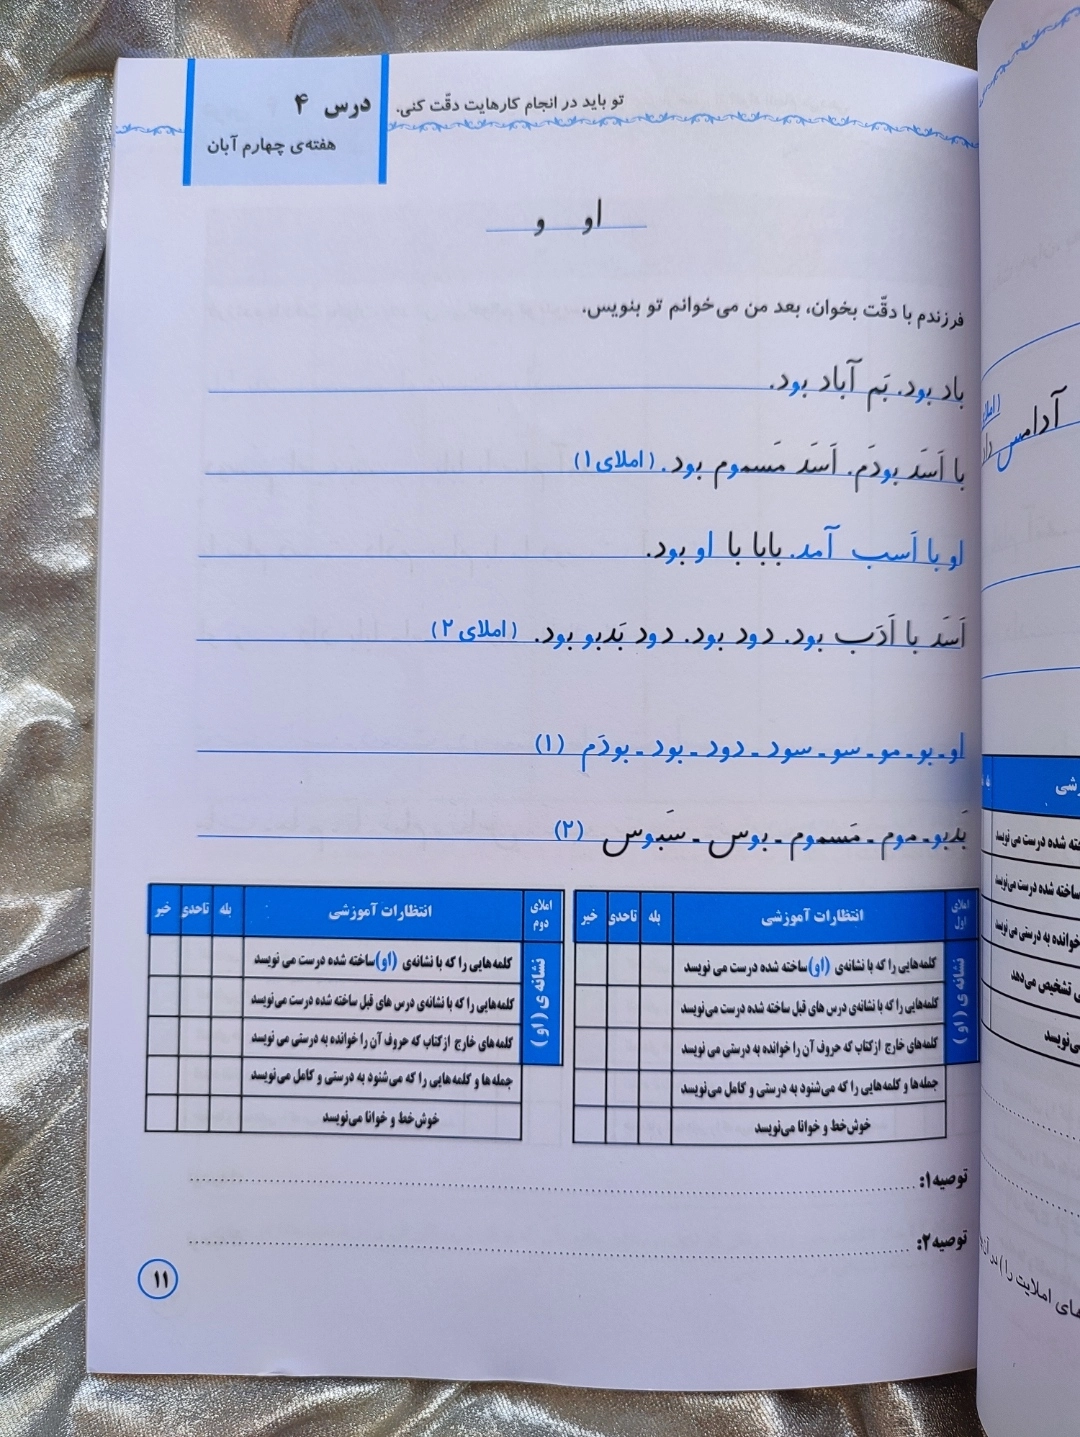 درس ۴
هفته‌ی چهارم آبان
تو باید در انجام کارهایت دقّت کنی.
او و
فرزندم با دقّت بخوان، بعد من می‌خوانم تو بنویس.
باد بود. بَم آباد بود.
با اَسَد بودَم. اَسَد مَسموم بود. (املای ۱)
او با اَسب آمد. بابا با او بود.
اَسَد با اَدَب بود. دود بود. دود بَدبو بود. (املای ۲)
او ـ بو ـ مو ـ سو ـ سود ـ دود ـ بود ـ بودَم (۱)
بَدبو ـ موم ـ مَسموم ـ بوس ـ سَبوس (۲)
املای اول انتظارات آموزشی بله تاحدی خیر
نشانه ی (او)
کلمه‌هایی را که با نشانه‌ی (او) ساخته شده درست می نویسد
کلمه‌هایی را که با نشانه‌ی درس های قبل ساخته شده درست می‌نویسد
کلمه‌های خارج از کتاب که حروف آن را خوانده به درستی می نویسد
جمله‌ها و کلمه‌هایی را که می‌شنود به درستی و کامل می‌نویسد
خوش‌خط و خوانا می‌نویسد
املای دوم انتظارات آموزشی بله تاحدی خیر
نشانه ی (او)
کلمه‌هایی را که با نشانه‌ی (او) ساخته شده درست می نویسد
کلمه‌هایی را که با نشانه‌ی درس های قبل ساخته شده درست می‌نویسد
کلمه‌های خارج از کتاب که حروف آن را خوانده به درستی می نویسد
جمله‌ها و کلمه‌هایی را که می‌شنود به درستی و کامل می‌نویسد
خوش‌خط و خوانا می‌نویسد
توصیه۱:
توصیه۲:
۱۱
آدامس
ساخته شده درست می نویسد
ساخته شده درست می‌نویسد
خوانده به درستی می نویسد
تشخیص می‌دهد
می‌نویسد
املایت را